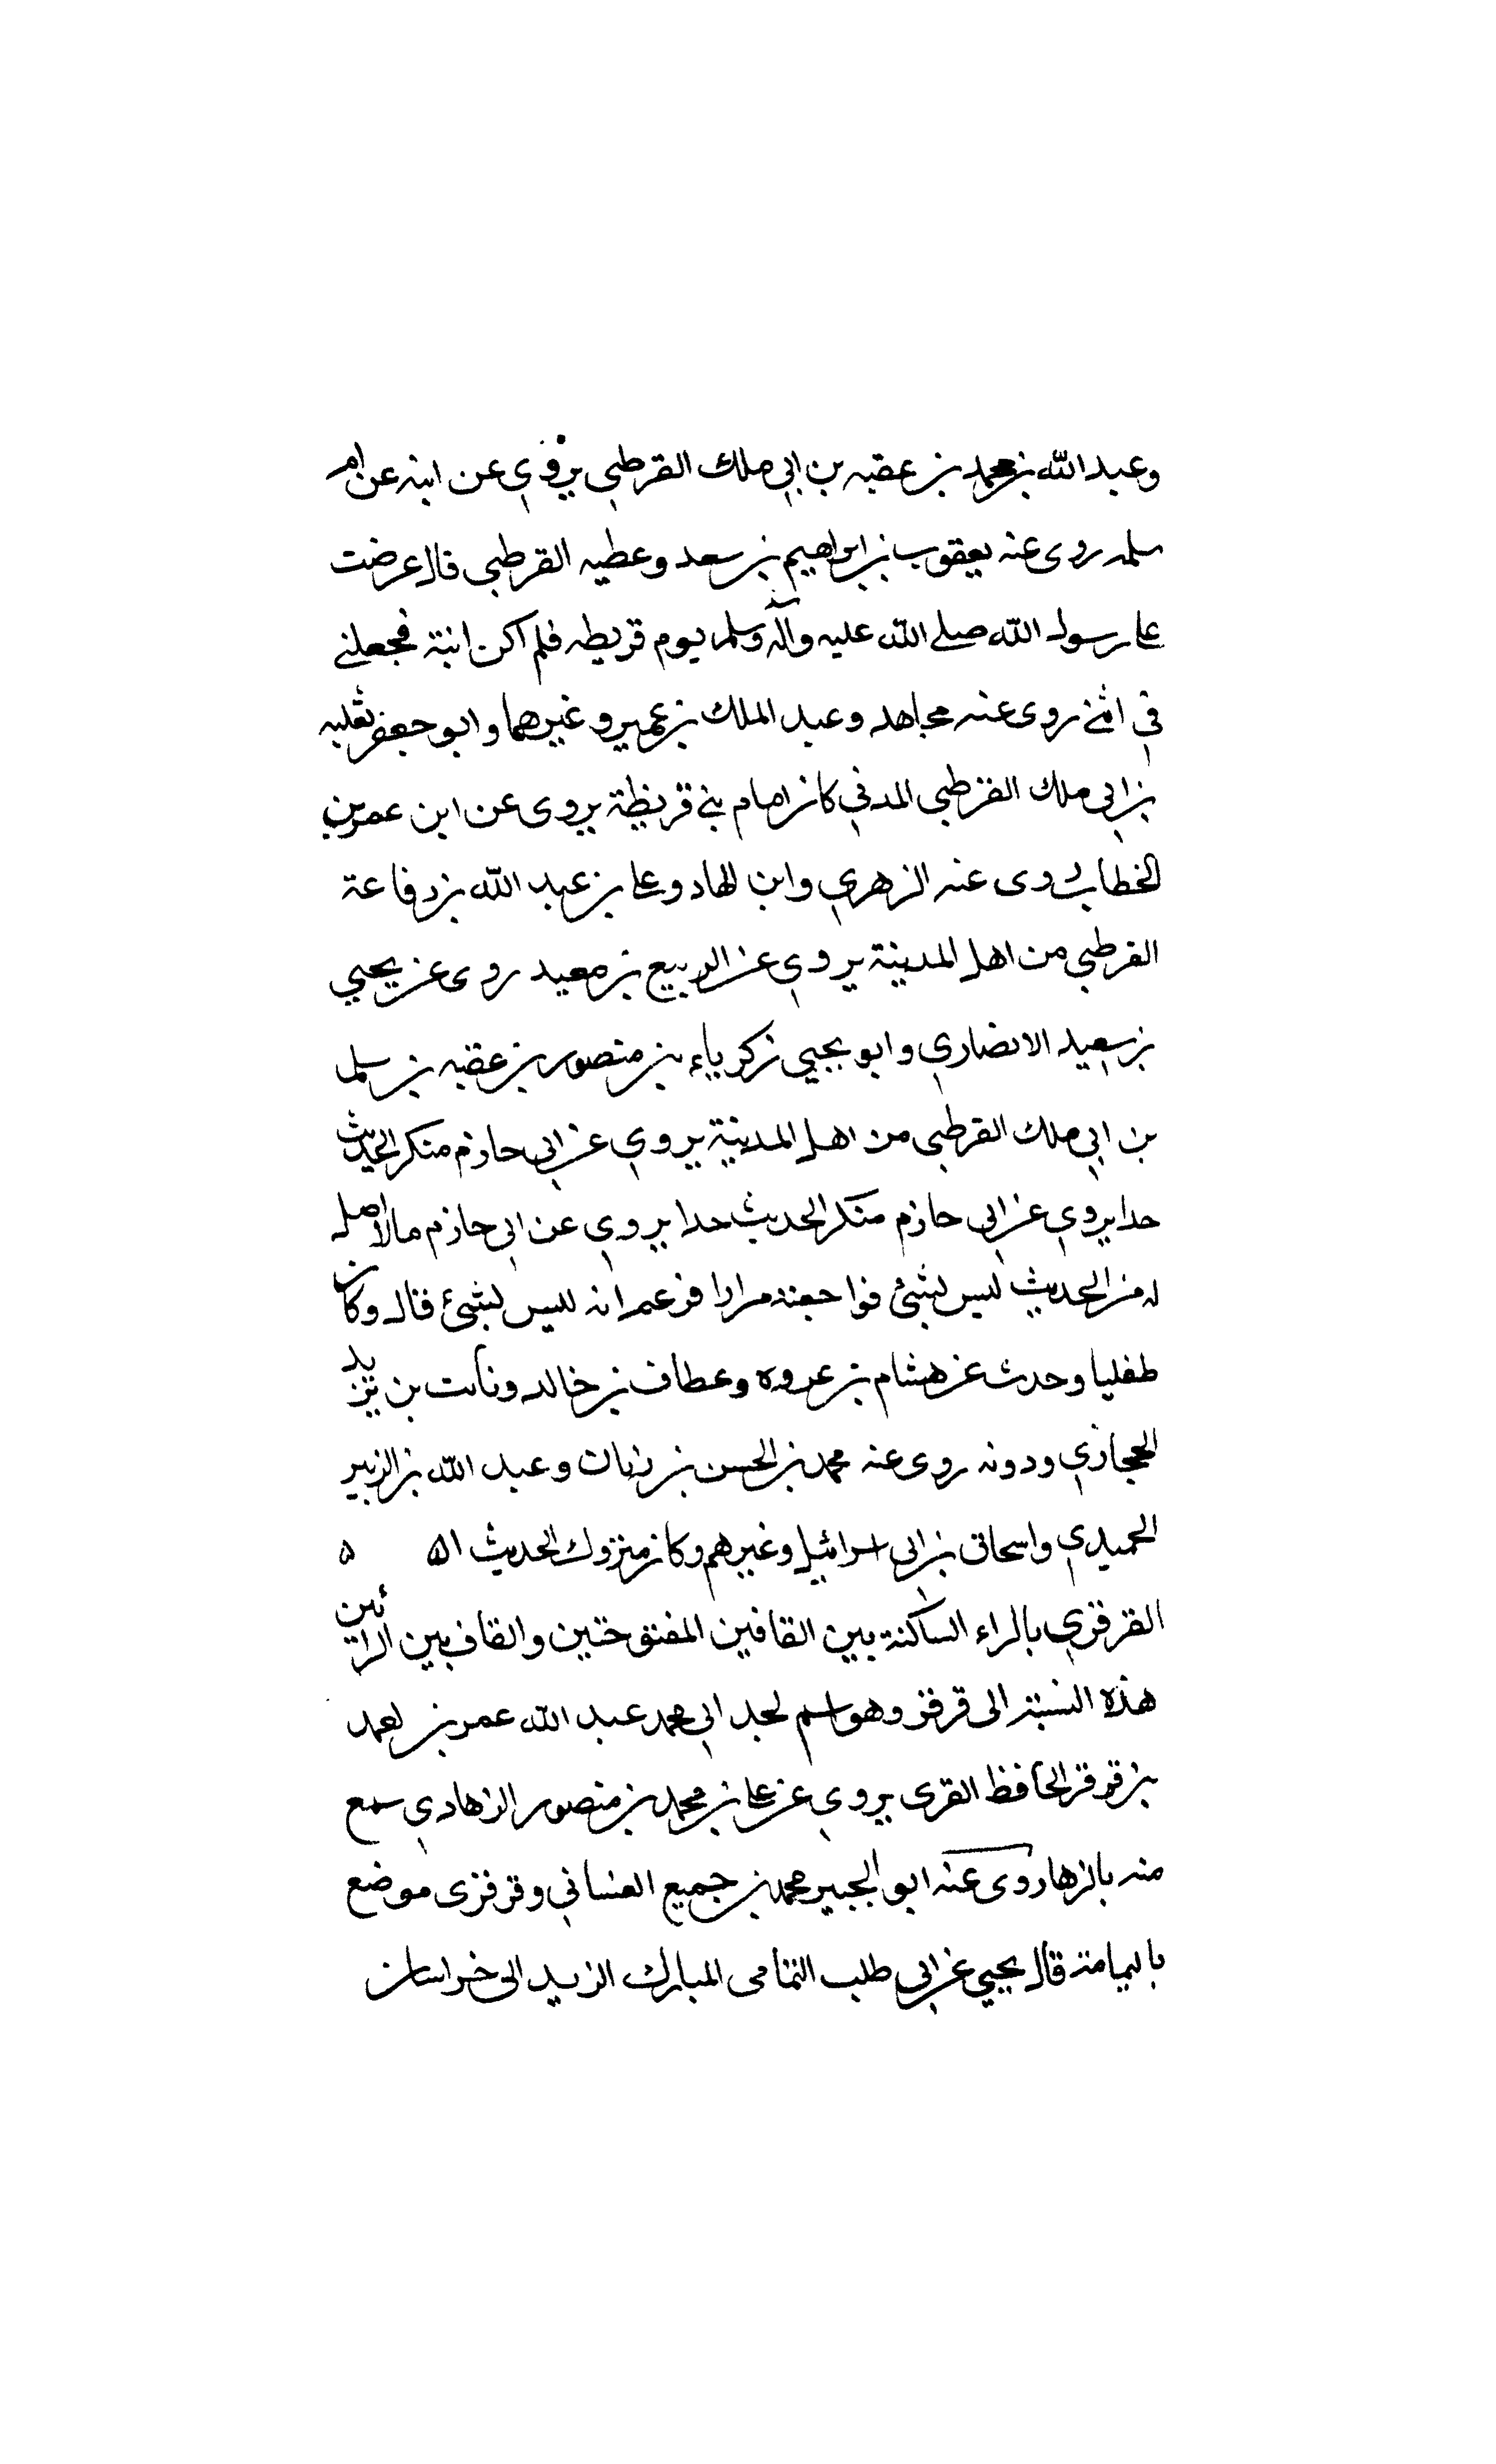 وعبد الله بن محمد بن عقبه بن ابي ملك القرطبي يروي عن ابيه عن ام
سلمه روى عنه يعقوب بن ابراهيم بن سعد وعطيه القرطبي قال عرضت
على رسول الله صلى الله عليه وآله وسلم يوم قريطه فلم اكن انبتة فجعلني
في روى عنه مجاهد وعبد الملك بن عمير وغيرهما وابو جعفر ثعلبه
بن ابي ملك القرطبي المدني كان امام بني قريظة يروى عن ابن عمر بن
الخطاب روى عنه الزهري وابن الهاد وعلى بن عبد الله بن رفاعة
القرطبي من اهل المدينة يروي عن الربيع بن معبد روى عن يحيى
بن سعيد الانصاري وابو يحيي زكرياء بن منصور بن عقبه بن سلم
بن ابي ملك القرطبي من اهل المدينة يروي عن ابي حازم منكر الحديث
حدا يروي عن ابي حازم منكر الحديث حدا يروي عن ابي حازم مالا اصل
له من الحديث ليس بشئ فواجعته مرارا فزعم انه ليس بشئ قال وكان
طفليا وحدث عن هشام بن عروه وعطاف بن خالد وثابت بن يزيد
الحجازي ودونه روى عنه محمد بن الحسن بن زبان وعبد الله بن الزبير
الحميدي واسحاق بن ابي اسرائيل وغيرهم وكان متروك الحديث
القرقزي بالراء الساكنة بين القافين المفتوحتين والقاف بين الرائين
هذه النسبة الى قرقز وهو اسم لجد ابي محمد عبد الله عمر بن احمد
بن قرقز الحافظ القرى يروي عن على بن محمد بن منصور الزهادي سمع
منه بالزها روى عنه ابو الجبير محمد بن جميع الغساني وقرقزى موضع
باليمامة قال يحيي عن ابي طلب المبارك الزيد الى خراسان